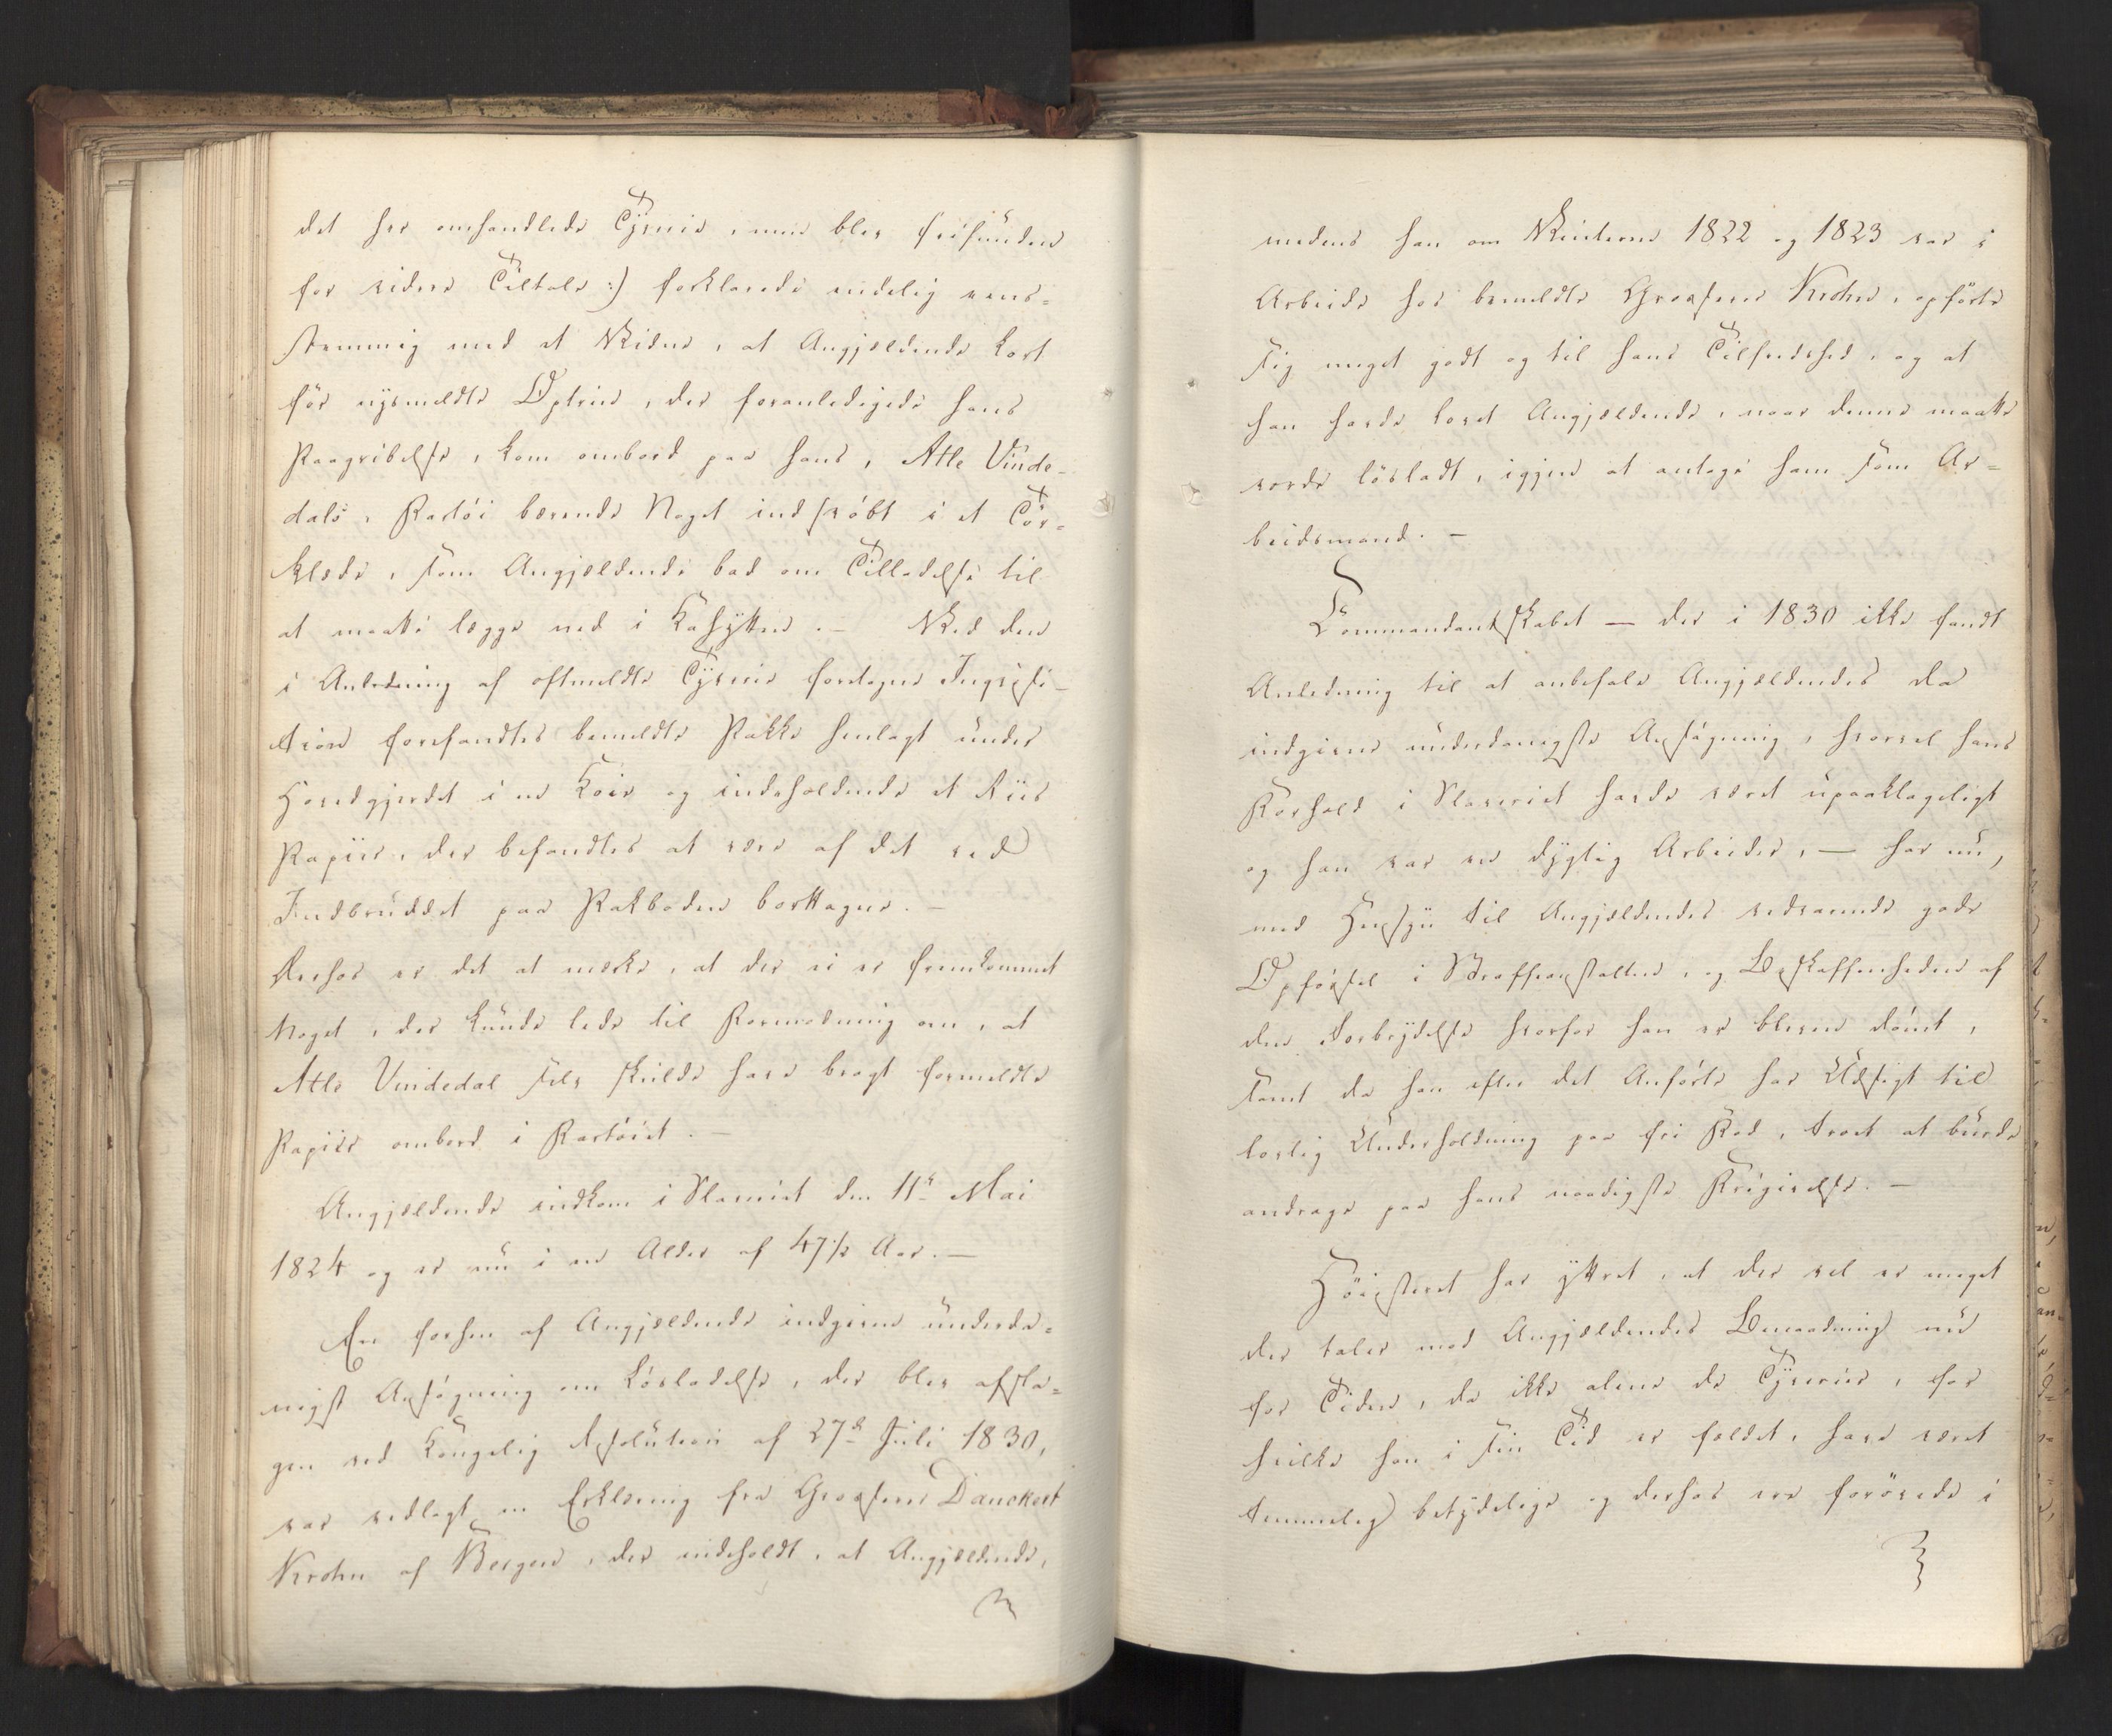 det her omhandlede Tyverie, men blev frifunden
for videre Tiltale :) forklarede endelig eens-
stemmig med et Vidne, at Angjældende kort
før nysmeldte Optrin, der foranledigede hans
Paagribelse, kom ombord paa hans, Atle Vinde-
dals, Fartøi bærende Noget indsvøbt i et Tør-
klæde, som Angjældende bad om Tilladelse til
at maatte lægge ned i Kahytten. – Ved den
i Anledning af oftmeldte Tyverie foretagne Inqvisi-
tion forefandtes bemeldte Pakke henlagt under
Hovedgjerdet i en Køie og indeholdende et Riis
Papiir, der befandtes at være af det ved
Indbruddet paa Pakboden borttagne. –
Derhos er det at mærke, at der ei er fremkommet
Noget, der kunde lede til Formodning om, at
Atle Vindedal selv skulde have bragt formeldte
Papiir ombord i Fartøiet. –
Angjældende indkom i Slaveriet den 11te Mai
1824 og er nu i en Alder af 47½ Aar. –
En forhen af Angjældende indgiven underda-
nigst Ansøgning om Løsladelse, der blev afsla-
gen ved Kongelig Resolution af 27de Juli 1830,
var vedlagt en Erklæring fra Grosserer Danckert
Krohn af Bergen, der indeholdt, at Angjældende,
medens han om Vinteren 1822 og 1823 var i
Arbeide hos bemeldte Grosserer Krohn, opførte
sig meget godt og til hans Tilfredshed, og at
han havde lovet Angjældende, naar denne maatte
vorde løsladt, igjen at antage ham som Ar-
beidsmand. –
Commandantskabet – der i 1830 ikke fandt
Anledning til at anbefale Angjældendes da
indgivne underdanigste Ansøgning, hvorvel hans
Forhold i Slaveriet havde været upaaklageligt
og han var en dygtig Arbeider, – har nu,
med Hensyn til Angjældendes vedvarende gode
Opførsel i Straffeanstalten, og Beskaffenheden af
den Forbrydelse hvorfor han er bleven dømt,
samt da han efter det Anførte har Udsigt til
lovlig Underholdning paa fri Fod, troet at burde
andrage paa hans naadigste Frigivelse. –
Høiesteret har yttret, at der vel er meget
der taler mod Angjældendes Benaadning nu
for Tiden, da ikke alene de Tyverier, for
hvilke han i sin Tid er fældet, have været
temmelig betydelige og derhos ere forøvede i